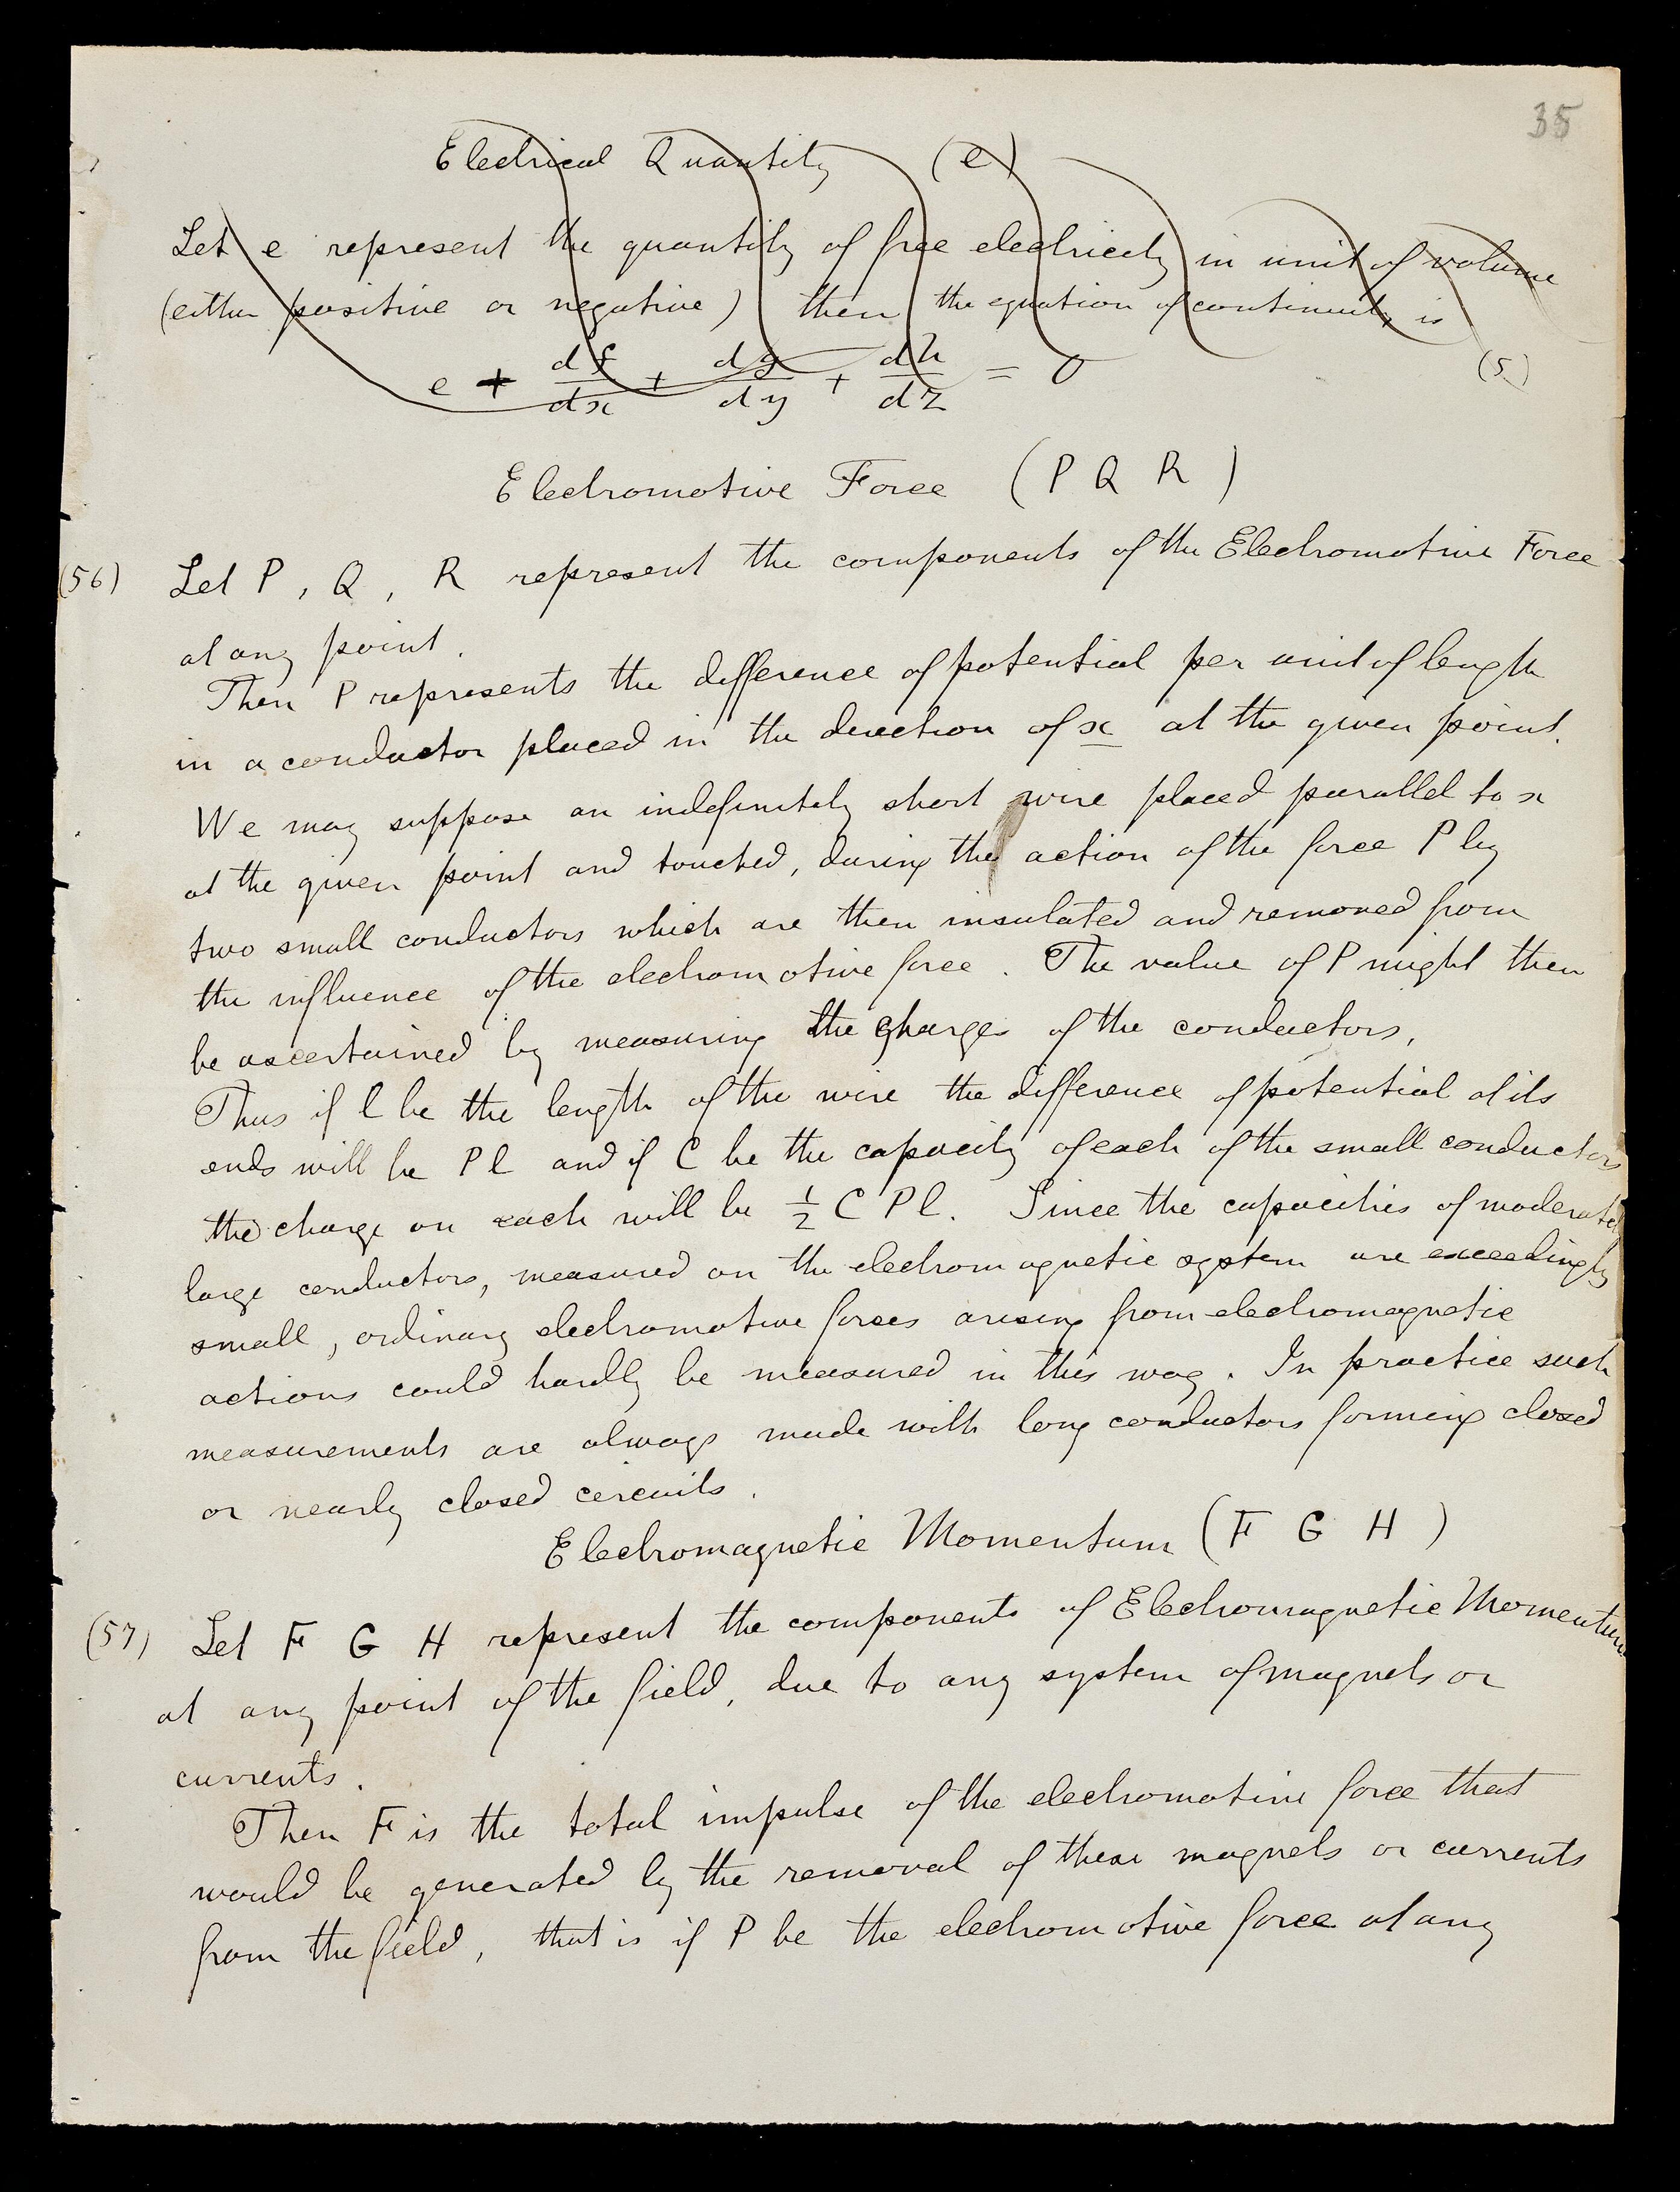 35
Electrical Quantity (e)
Let e represent the quantity of free electricity in unit of volume
(either positive or negative) then the equation of continuity is
e + df/dx + dg/dy + dh/dz = 0 (5)
Electromotive Force (P Q R)
(56) Let P, Q, R represent the components of the Electromotive Force
at any point.
Then P represents the difference of potential per unit of length
in a conductor placed in the direction of x at the given point.
We may suppose an indefinitely short wire placed parallel to x
at the given point and touched, during the action of the force P by
two small conductors which are then insulated and removed from
the influence of the electromotive force. The value of P might then
be ascertained by measuring the charges of the conductors,
Thus if l be the length of the wire the difference of potential at its
ends will be Pl and if C be the capacity of each of the small conductors
the charge on each will be 1/2 C P l. Since the capacities of moderately
large conductors, measured on the electromagnetic system are exceedingly
small, ordinary electromotive forces arising from electromagnetic
actions could hardly be measured in this way. In practice such
measurements are always made with long conductors forming closed
or nearly closed circuits.
Electromagnetic Momentum (F G H)
(57) Let F G H represent the components of Electromagnetic Momentum
at any point of the field, due to any system of magnets or
currents.
Then F is the total impulse of the electromotive force that
would be generated by the removal of these magnets or currents
from the field, that is if P be the electromotive force at any